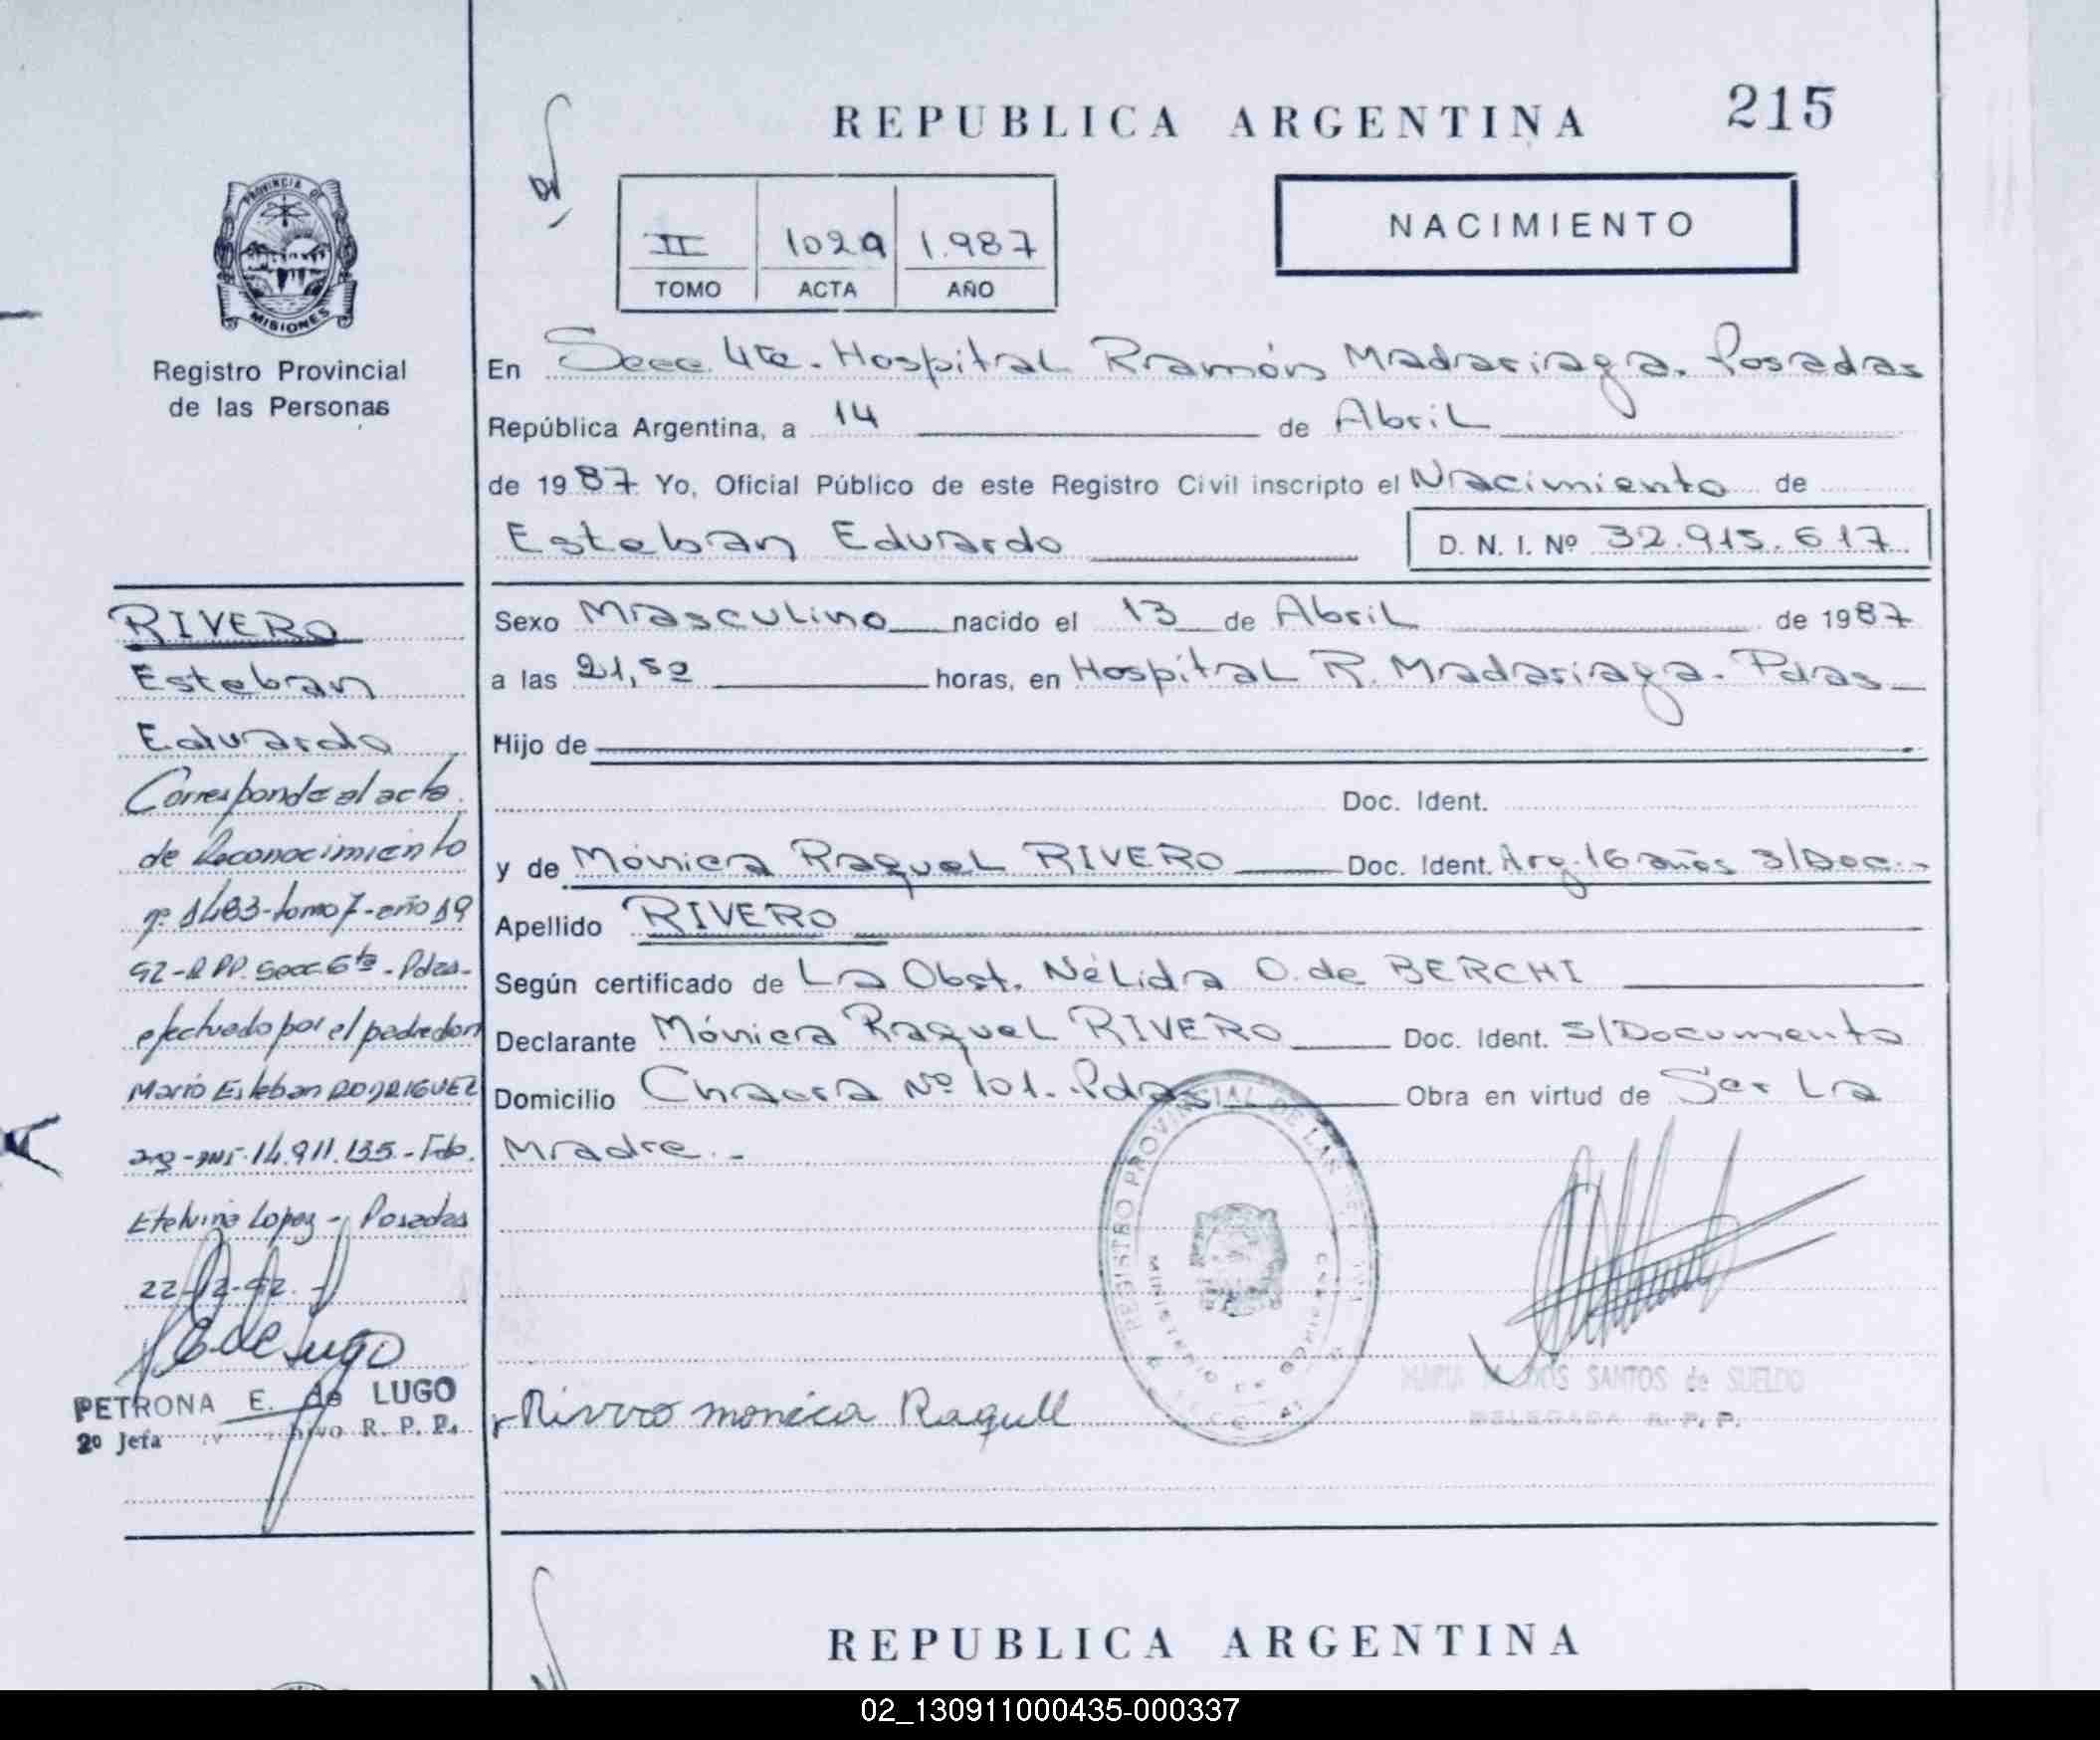 REPUBLICA ARGENTINA
215
PROVINCIA D
MISIONES
Registro Provincial
de las Personas
II 1029 1.987
TOMO ACTA AÑO
NACIMIENTO
En Secc. 4ta. Hospital Ramón Madariaga. Posadas
República Argentina, a 14 de Abril
de 1987 Yo, Oficial Público de este Registro Civil inscripto el Nacimiento de
Esteban Eduardo D. N. I. Nº 32.915.617
Sexo Masculino nacido el 13 de Abril de 1987
a las 21,52 horas, en Hospital R. Madariaga. Pdas
Hijo de
Doc. Ident.
y de Mónica Raquel RIVERO Doc. Ident. Arg. 16 años S/Doc.-
Apellido RIVERO
Según certificado de La Obst. Nélida O. de BERCHI
Declarante Mónica Raquel RIVERO Doc. Ident. S/Documento
Domicilio Chacra Nº 101. Pdas Obra en virtud de Ser La
Madre.-
RIVERO
Esteban
Eduardo
Corresponde al acta
de Reconocimiento
nº 1483-tomo 7-año 19
92-R.PP. Secc. 6ta-Pdas-
efectuado por el padre don
Mario Esteban RODRIGUEZ
arg-DNI-14.911.135.-Fdo.
Etelvina Lopez - Posadas
22-12-92.-
E de Lugo
PETRONA E. de LUGO
2º Jefa R. P. P.
REGISTRO PROVINCIAL DE LAS
MINISTERIO DE GOBIERNO
Rivero monica Raquel
MARIA M. DOS SANTOS de SUELDO
DELEGADA R. P. P.
REPUBLICA ARGENTINA
02_130911000435-000337